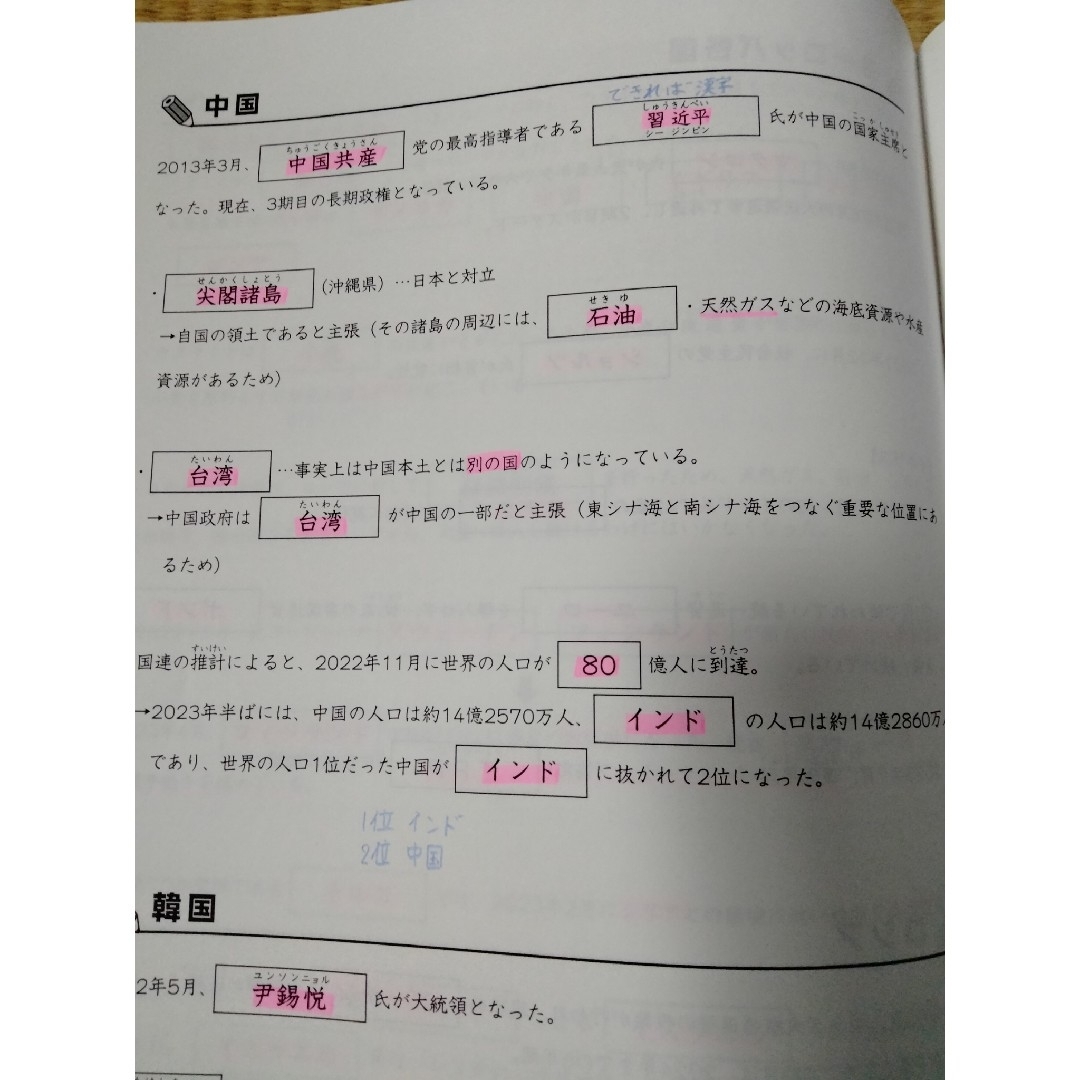 中国
できれば漢字
ちゅうごくきょうさん
しゅうきんぺい
2013年3月、 中国共産 党の最高指導者である 習近平 氏が中国の国家主席と
シー ジンピン
なった。現在、3期目の長期政権となっている。
せんかくしょとう
・ 尖閣諸島 (沖縄県) …日本と対立
せきゆ
→自国の領土であると主張(その諸島の周辺には、 石油 ・天然ガスなどの海底資源や水産
資源があるため)
たいわん
・ 台湾 …事実上は中国本土とは別の国のようになっている。
たいわん
→中国政府は 台湾 が中国の一部だと主張(東シナ海と南シナ海をつなぐ重要な位置にあ
るため)
すいけい
とうたつ
国連の推計によると、2022年11月に世界の人口が 80 億人に到達。
→2023年半ばには、中国の人口は約14億2570万人、 インド の人口は約14億2860万
であり、世界の人口1位だった中国が インド に抜かれて2位になった。
1位 インド
2位 中国
韓国
ユンソンニョル
2年5月、 尹錫悦 氏が大統領となった。